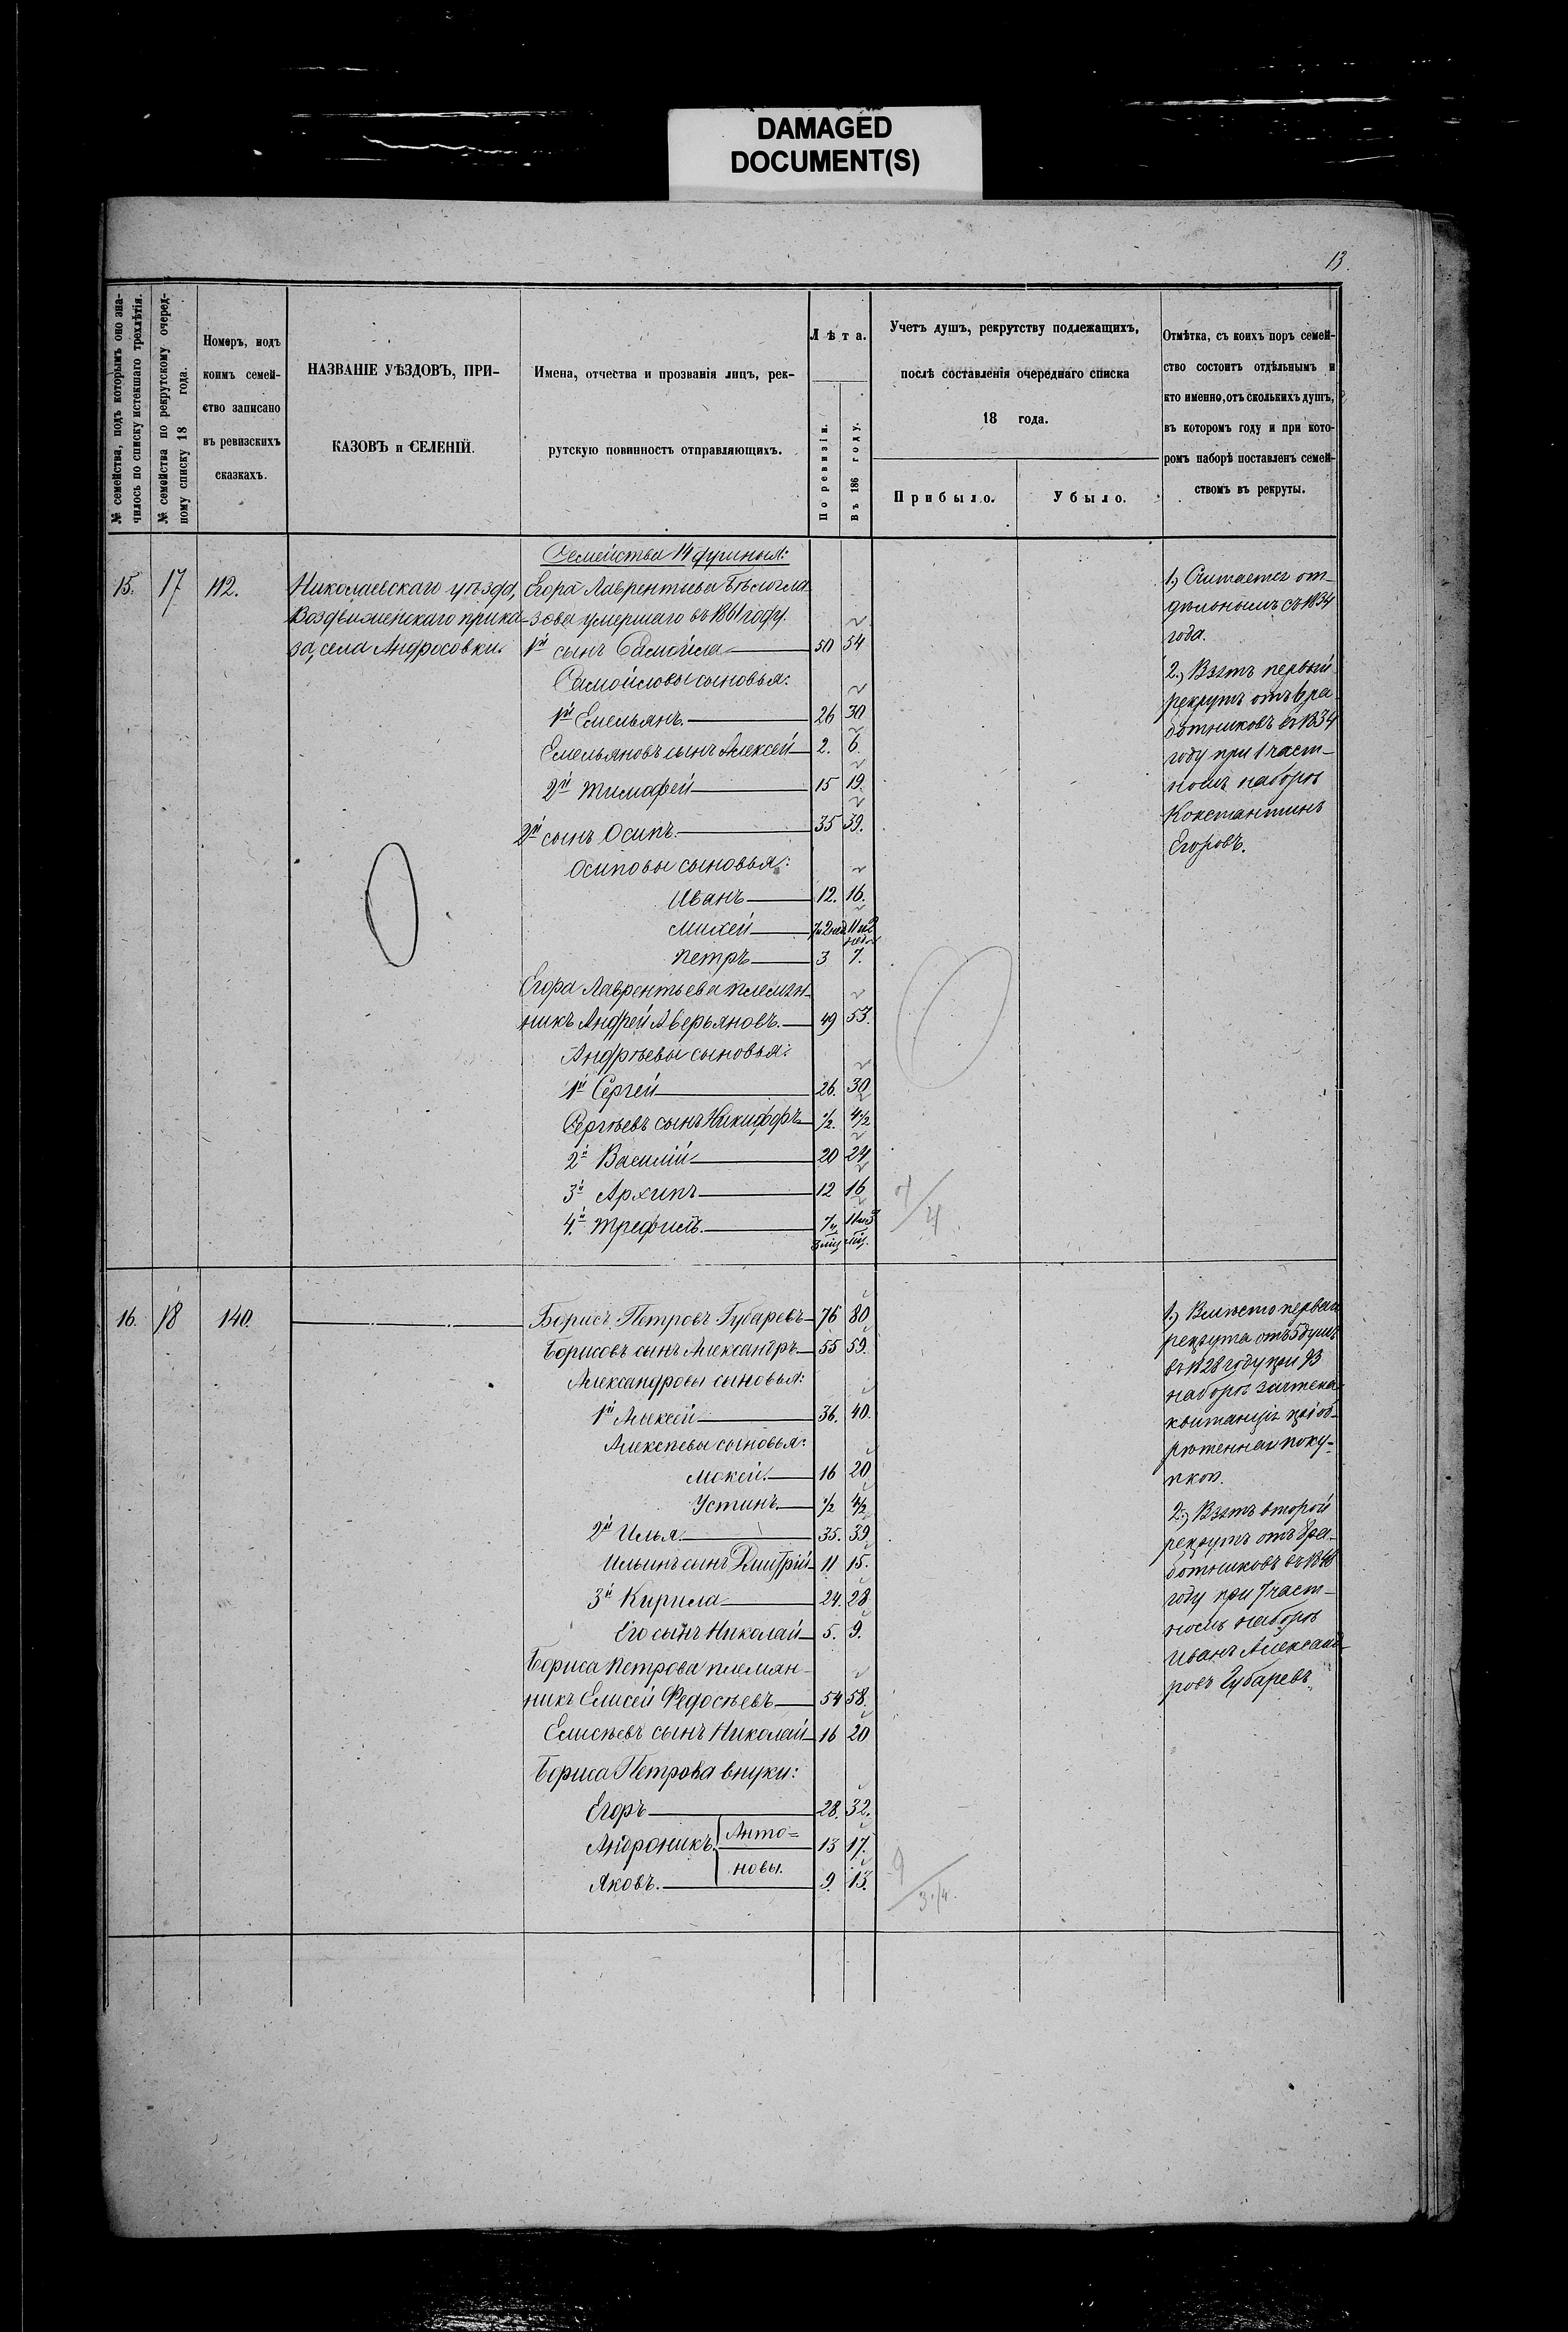 DAMAGED
DOCUMENT(S)
13.
№ семейства, подъ которымъ оно зна-
чилось по списку истекшаго трехлѣтія.
№ семейства по рекрутскому очеред-
ному списку 18 года.
Номеръ, подъ
коимъ семей-
ство записано
въ ревизскихъ
сказкахъ.
НАЗВАНІЕ УѢЗДОВЪ, ПРИ-
КАЗОВЪ и СЕЛЕНІЙ.
Имена, отчества и прозванія лицъ, рек-
рутскую повинность отправляющихъ.
Лѣта.
По ревизіи.
Въ 186 году.
Учетъ душъ, рекрутству подлежащихъ,
послѣ составленія очереднаго списка
18 года.
Прибыло.
Убыло.
Отмѣтка, съ коихъ поръ семей-
ство состоитъ отдѣльнымъ и
кто именно, отъ сколькихъ душъ,
въ которомъ году и при кото-
ромъ наборѣ поставленъ семей-
ствомъ въ рекруты.
Семейства 14 душныя:
15. 17 112. Николаевскаго уѣзда,
Воздвиженскаго прика-
за, села Андросовки.
Егора Лаврентьева Бѣлогла-
зова умершаго въ 1861 году.
1й сынъ Самойла 50 54
Самойловы сыновья:
1й Емельянъ. 26 30
Емельяновъ сынъ Алексей 2. 6
2й Тимофей 15 19.
2й сынъ Осипъ. 35 39.
Осиповы сыновья:
Иванъ 12. 16.
Михей 7и2нед 11и2
недѣ
Петръ 3 7.
Егора Лаврентьева племян-
никъ Андрей Аверьяновъ. 49 53.
Андрѣевы сыновья:
1й Сергей 26. 30
Сергѣевъ сынъ Никифоръ 1/2. 4 1/2
2й Василій 20 24
3й Архипъ 12 16
4.й Трефилъ. 7и 11и3
3мц мц.
4/4
1.) Считается от-
дѣльнымъ съ 1834
года.
2.) Взятъ первый
рекрутъ отъ 6 ра-
ботниковъ въ 1834
году при 1 част-
номъ наборѣ
Константинъ
Егоровъ.
16. 18 140.
Борисъ Петровъ Губаревъ 76 80
Борисовъ сынъ Александръ 55 59.
Александровы сыновья:
1й Алексей 36. 40.
Алексеевы сыновья:
Мокей. 16 20
Устинъ. 1/2 4 1/2
2й Илья. 35. 39
Ильинъ сынъ Дмитрій 11 15.
3й Кирила 24. 28
Его сынъ Николай 5. 9.
Бориса Петрова племян-
никъ Елисей Федосѣевъ 54 58.
Елисѣевъ сынъ Николай 16 20
Бориса Петрова внуки:
Егоръ 28. 32.
Андроникъ. Анто= 13 17.
новы.
Яковъ. 9. 13.
9/3/4.
1.) Вмѣсто перваго
рекрута отъ 5 душъ
въ 1828 году при 93
наборѣ зачтена
квитанція пріоб-
рѣтенная поку-
пкой.
2.) Взятъ второй
рекрутъ отъ 8 ра-
ботниковъ въ 1848
году при 7 част-
номъ наборѣ
Иванъ Александ-
ровъ Губаревъ.